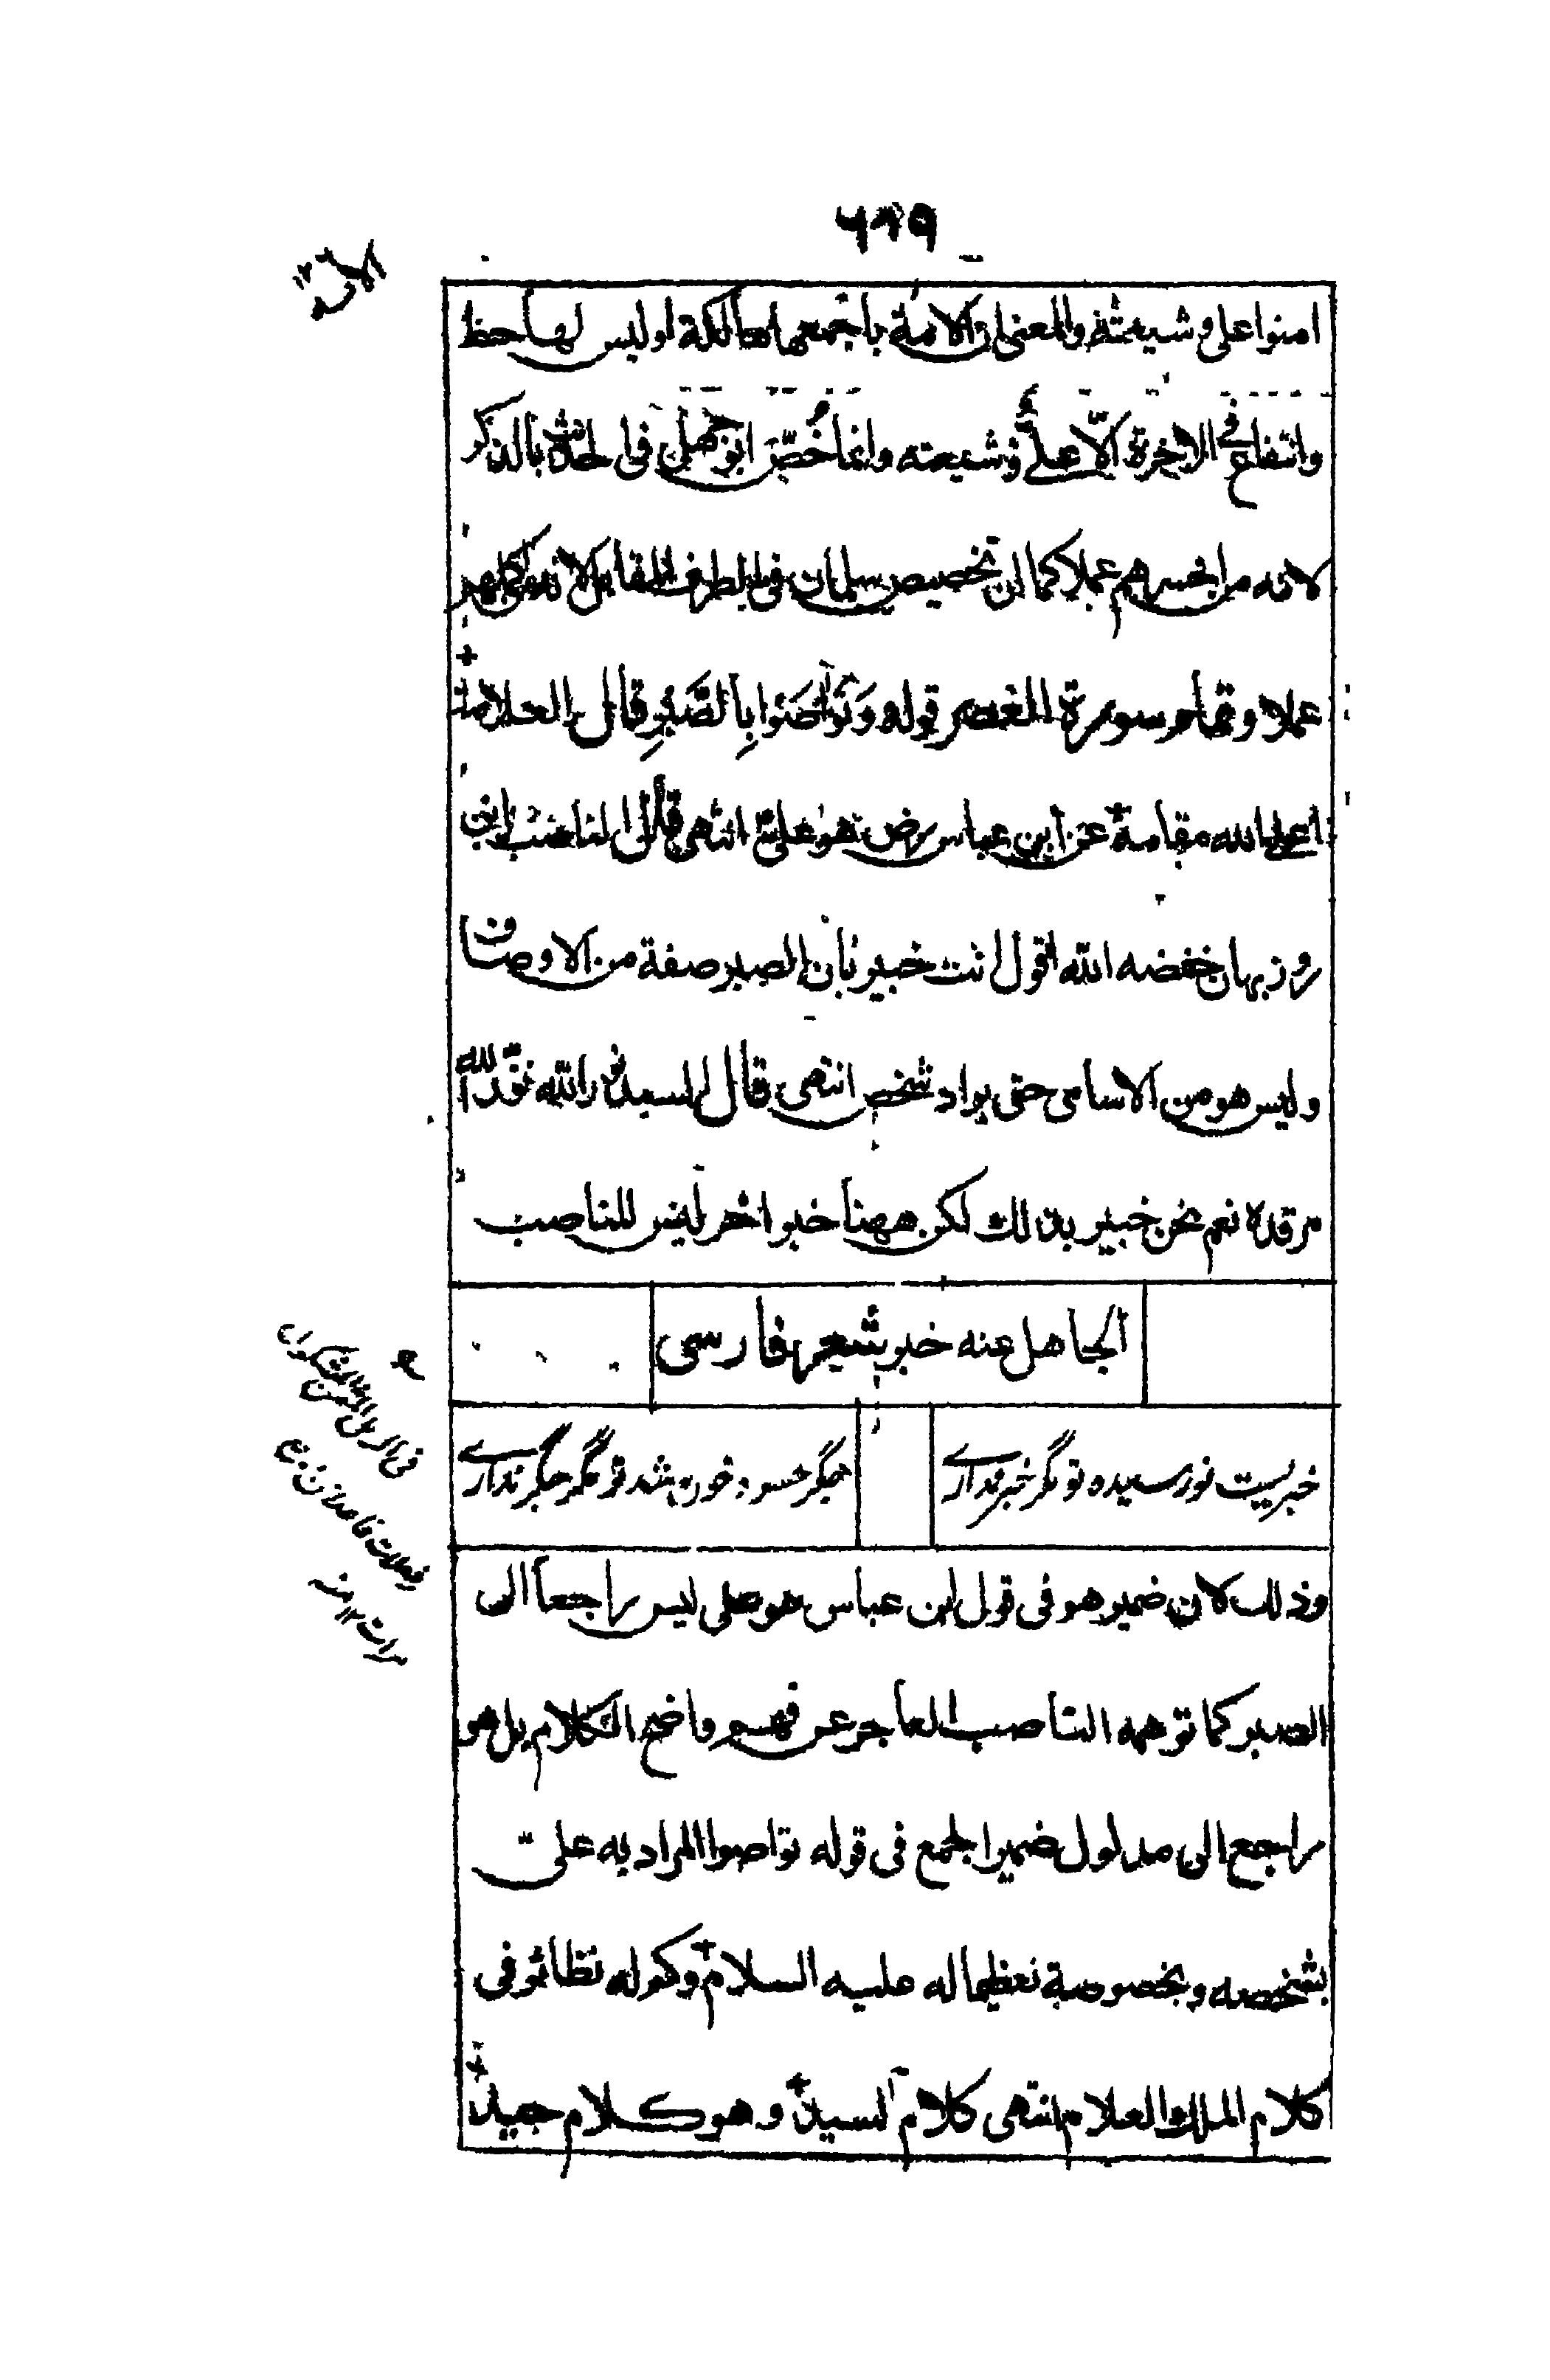 ٦٩٩
امنوا علي وشيعته والمعنى ان الامة باجمعها هالكة او ليس لها حظ
وانتفاع في الاخرة الّا عليٌّ وشيعته وانما خُصَّ ابو جهل في الحديث بالذكر
لانه من اخسرهم عملا كما ان تخصيص سلمان في الطرف المقابل لانه من اكملهم
عملا وتمام سورة العصر قوله وَتَوَاصَوْا بِالصَّبْرِ قال العلامة
اعلى الله مقامه عن ابن عباس رض هو علي انتهى قال الناصب ابن
روزبهان خفضه الله اقول انت خبير بان الصبر صفة من الاوصاف
وليس هو من الاسامي حتى يراد شخص انتهى قال السيد نور الله نوّر الله
مرقده نعم نحن خبير بذلك لكن ههنا خبر اخر ليس للناصب
الجاهل عنه خبر شعر فارسي
خبريست نورسيده تو مگر خبر نداری
جگر حسود خون شد تو مگر جگر نداری
وذلك لان ضمير هو في قول ابن عباس هو علي ليس راجعا الى
الصبر كما توهمه الناصب العاجز عن فهم واضح الكلام بل هو
راجع الى مدلول ضمير الجمع في قوله تواصوا المراد به عليّ
بشخصه وبخصوصه تعظيما له عليه السلام وكم له نظائر في
كلام الملك العلام انتهى كلام السيد وهو كلام جيد